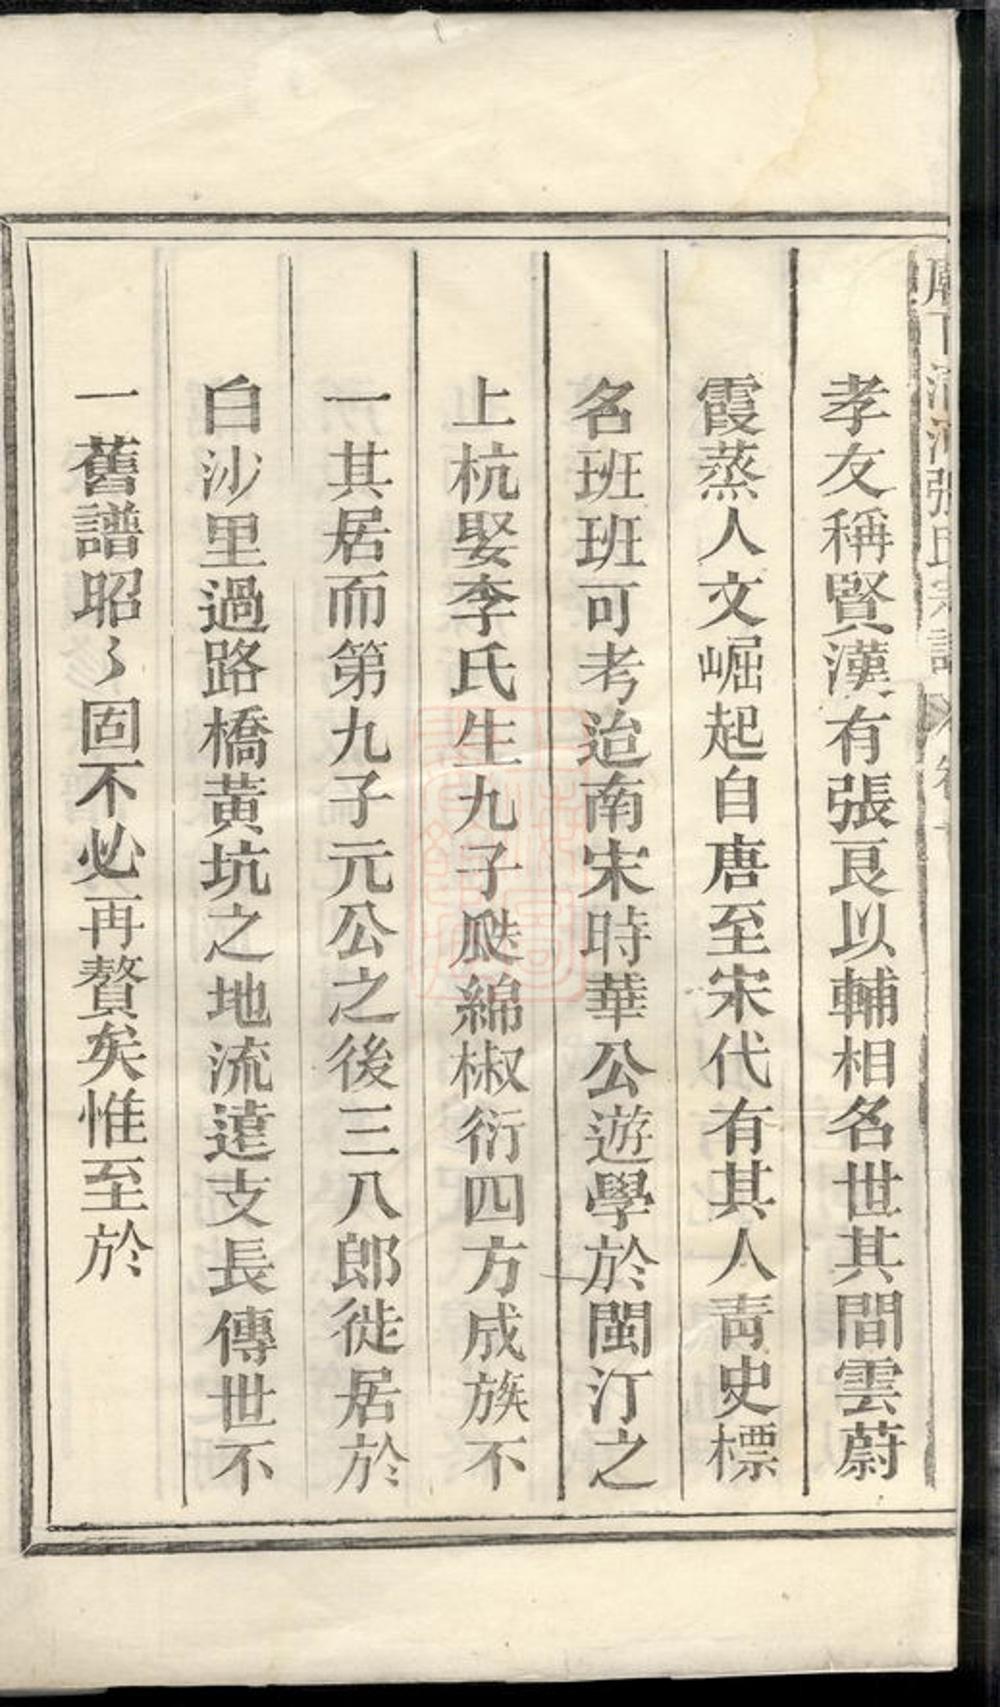 清河張氏宗譜 卷
孝友稱賢漢有張良以輔相名世其間雲蔚
霞蒸人文崛起自唐至宋代有其人青史標
名班班可考迨南宋時華公遊學於閩汀之
上杭娶李氏生九子瓞綿椒衍四方成族不
一其居而第九子元公之後三八郎徙居於
白沙里過路橋黃坑之地流遠支長傳世不
一舊譜昭〻固不必再贅矣惟至於